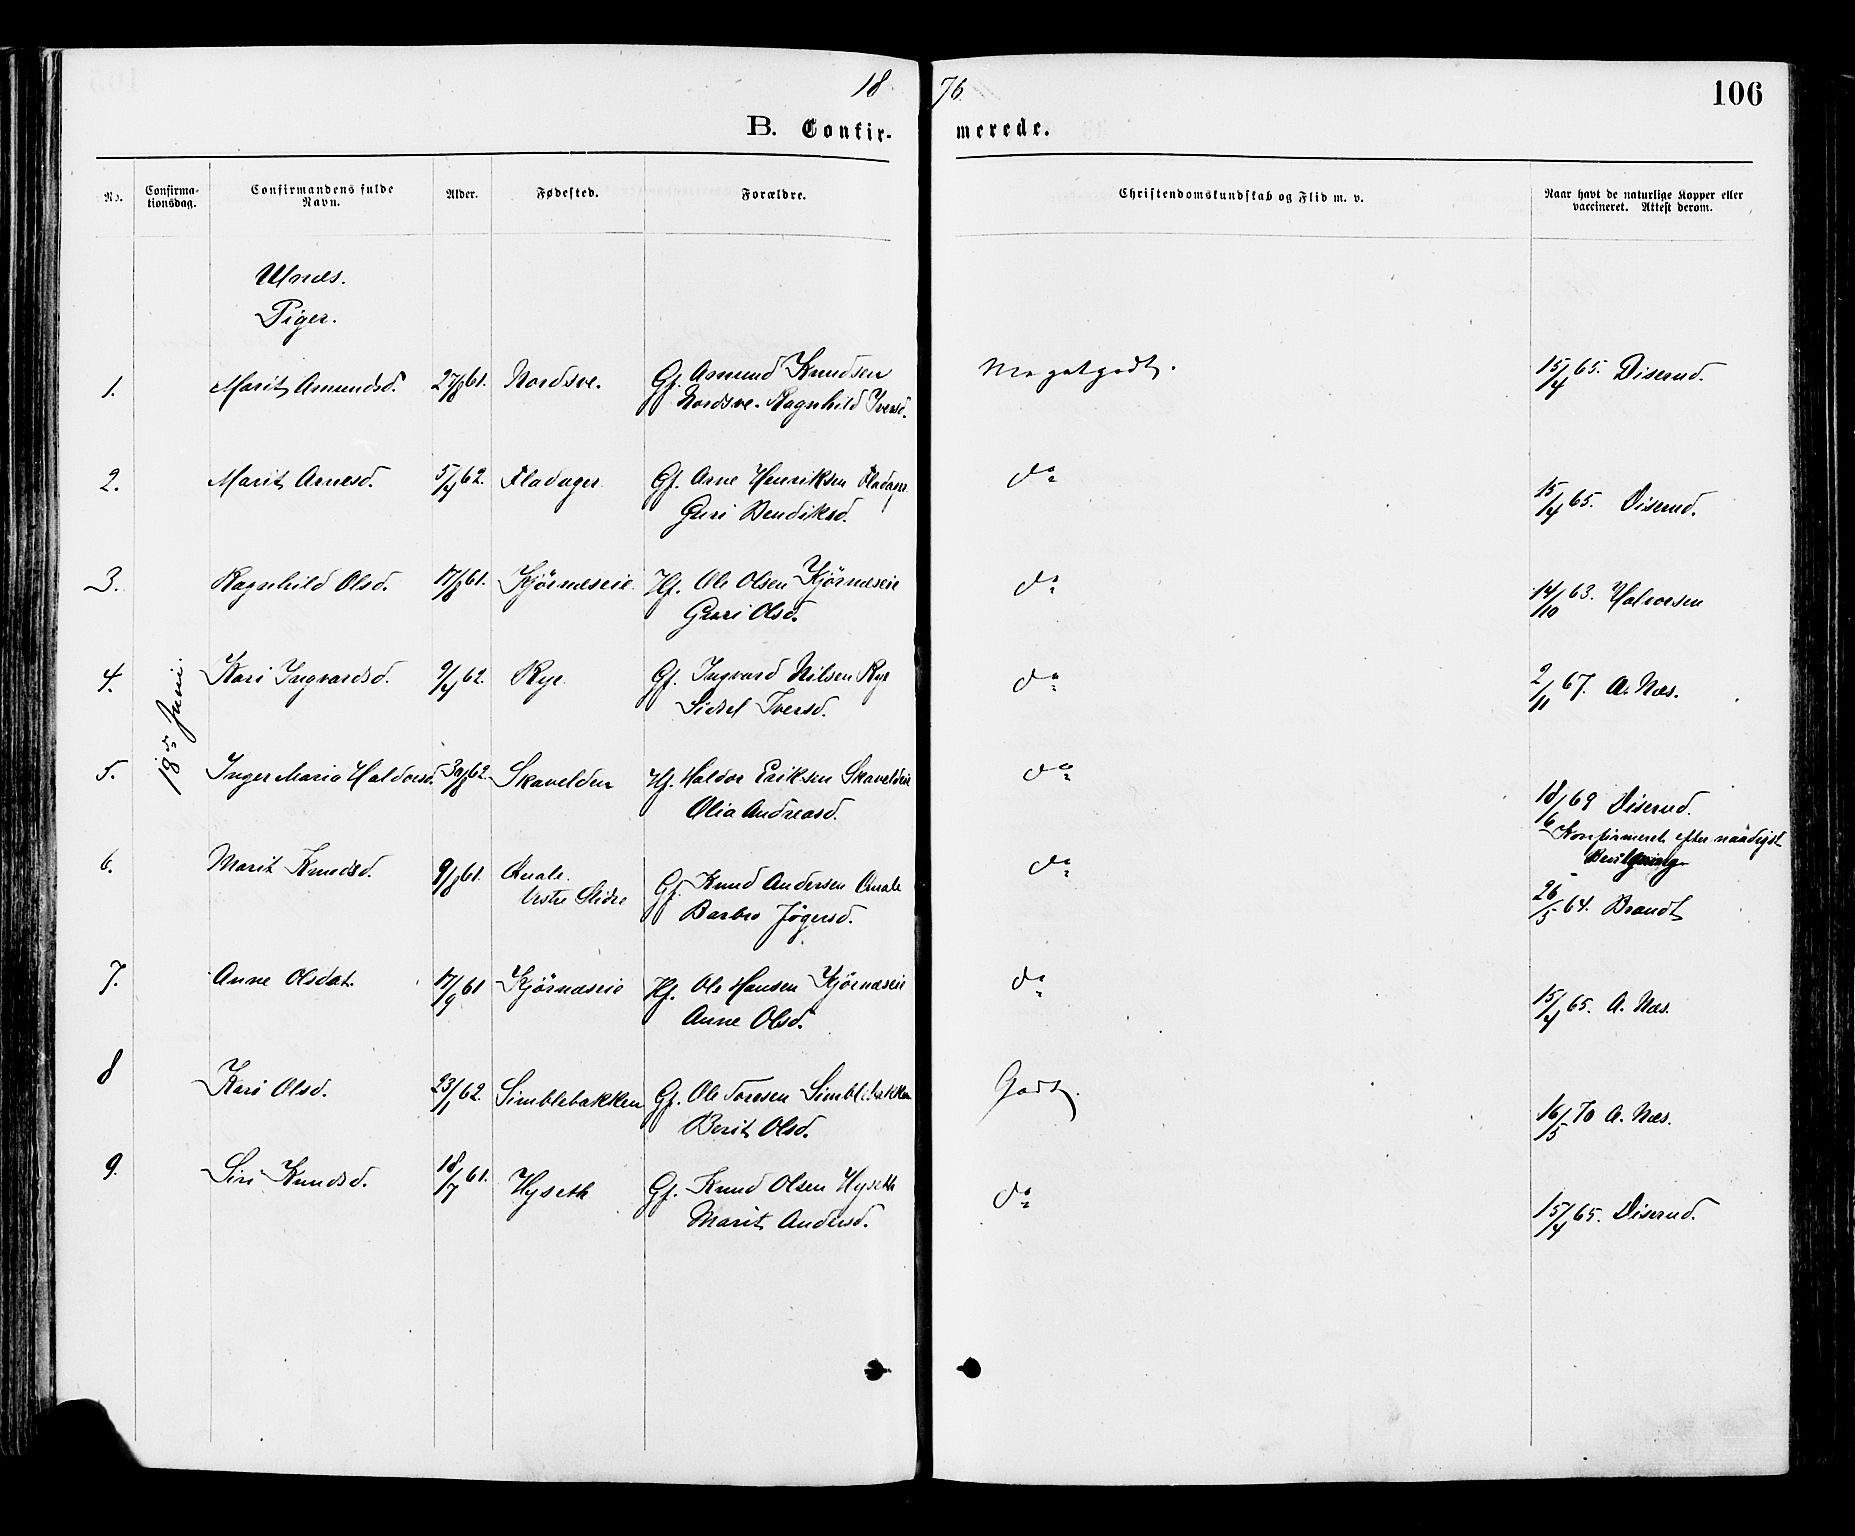 1876
106
B. Confirmerede.
No.
Confirma-
tionsdag.
Confirmandens fulde
Navn.
Alder.
Fødested.
Forældre.
Christendomskundskab og Flid m. v.
Naar havt de naturlige Kopper eller
vaccineret. Attest derom.
Ulnæs.
Piger.
18de Juni.
1. Marit Amundsd. 27/8 61. Nordsve. Gf. Amund Knudsen Megetgodt. 15/4 65. Diserud.
Nordsve. Ragnhild Iversd.
2. Marit Arnesd. 5/4 62. Fladager Gf. Arne Henriksen Fladager do 15/4 65. Diserud.
Guri Bendiksd.
3. Ragnhild Olsd. 17/8 61. Kjörnæseie Hf. Ole Olsen Kjörnæseie do 14/10 63. Halvorsen
Guri Olsd.
4. Kari Ingvardsd. 9/4 62. Rye Gf. Ingvard Nilsen Rye do 2/11 67. A. Næs.
Sidsel Iversd.
5. Inger Maria Haldorsd. 30/8 62. Skavelden Hf. Haldor Eriksen Skaveldeie do 18/6 69 Diserud.
Olia Andreasd. Konfirmeret efter naadigst
Bevilgning
6. Marit Knudsd. 9/8 61. Quale Gf. Knud Andersen Quale do 26/5 64. Brandt
Vestre Slidre Barbro Jøgersd.
7. Anne Olsdat. 17/9 61 Kjörnæseie Hf. Ole Hansen Kjörnæseie do 15/4 65. A. Næs.
Anne Olsd.
8 Kari Olsd. 23/1 62. Simblebakken Gf. Ole Toresen Simblebakken Godt. 16/5 70 A. Næs.
Berit Olsd.
9. Siri Knudsd. 18/7 61. Hyseth Gf. Knud Olsen Hyseth do 15/4 65. Diserud.
Marit Andersd.